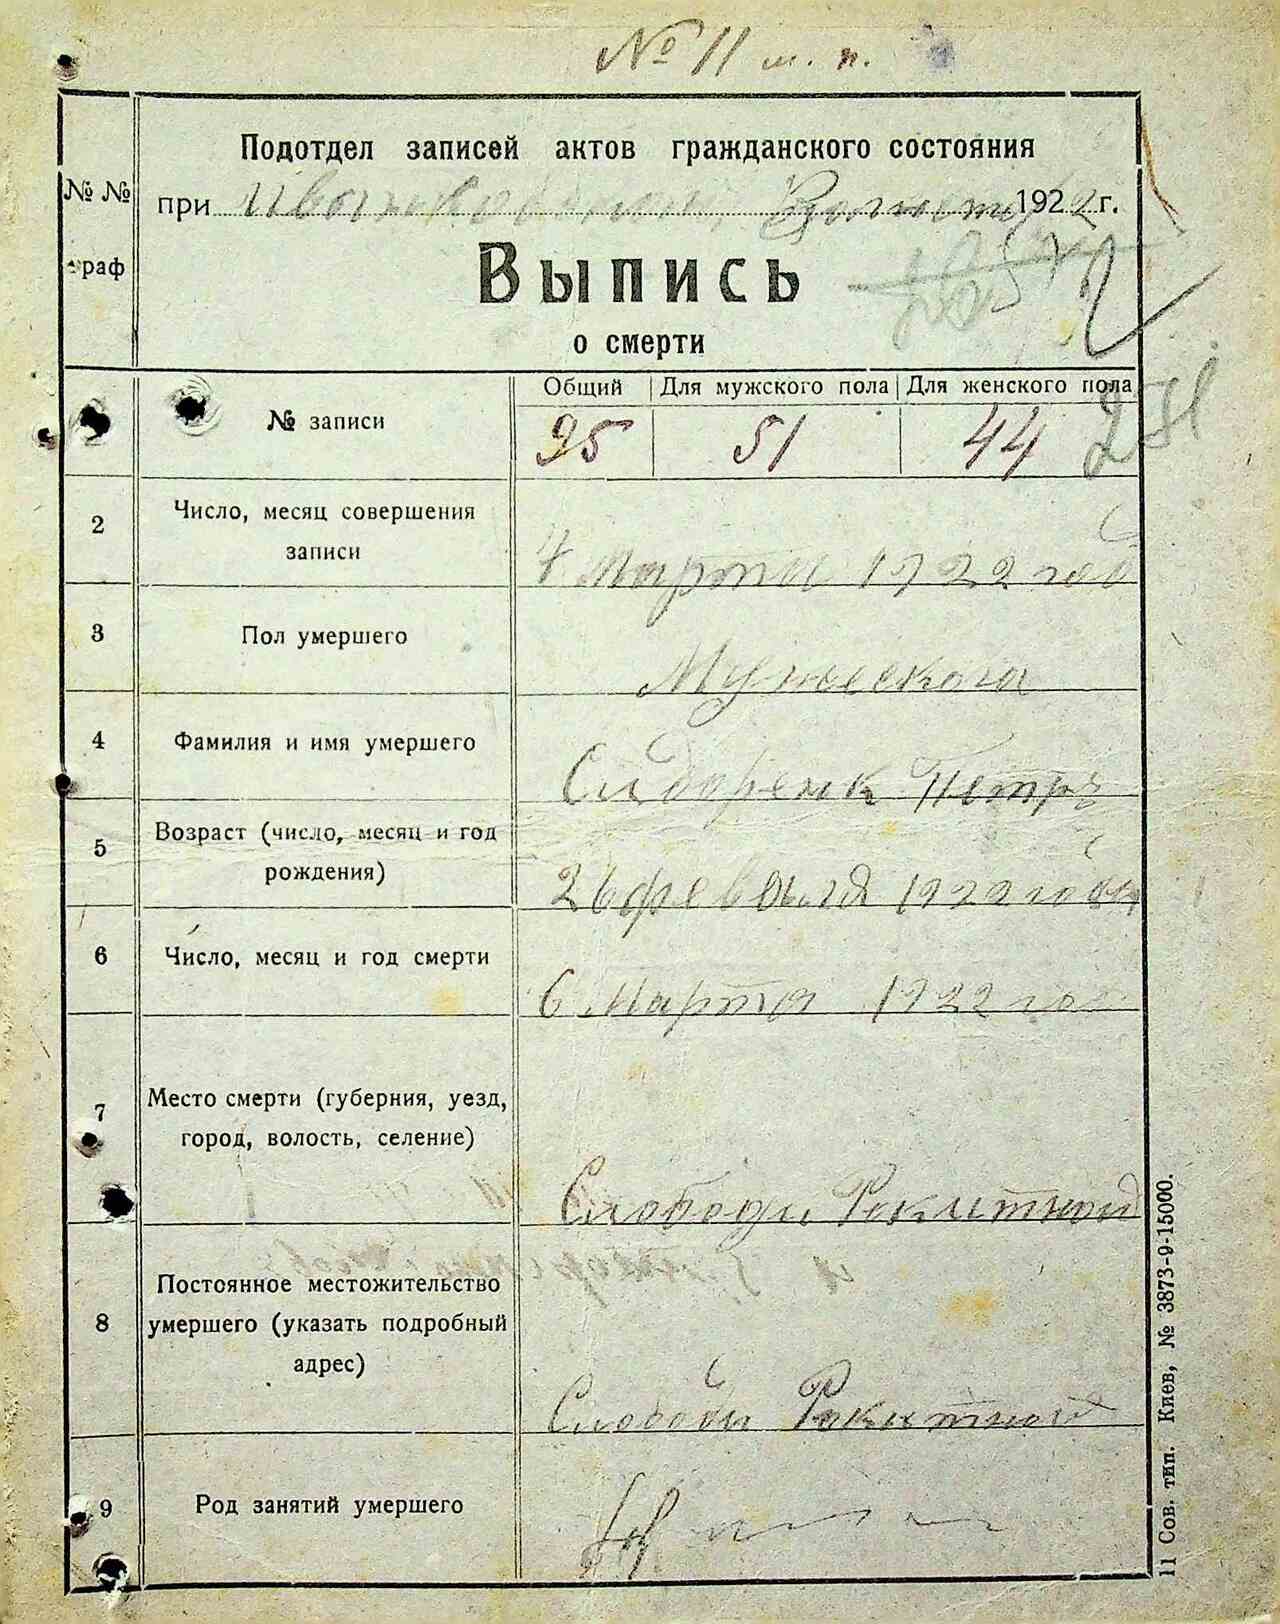 № 11 м. п.
Подотдел записей актов гражданского состояния
№ №
при 1922 г.
граф
Выпись
о смерти
Общий Для мужского пола Для женского пола
№ записи
95 51 44
231
2 Число, месяц совершения
записи
7 Марта 1922 год
3 Пол умершего
Мужеского
4 Фамилия и имя умершего
Сидоренк Петръ
5 Возраст (число, месяц и год
рождения)
26 февраля 1922 года
6 Число, месяц и год смерти
6 Марта 1922 год
7 Место смерти (губерния, уезд,
город, волость, селение)
Слободи Рокитной
8 Постоянное местожительство
умершего (указать подробный
адрес)
Слободи Рокитной
9 Род занятий умершего
11 Сов. тип. Киев, № 3873-9-15000.